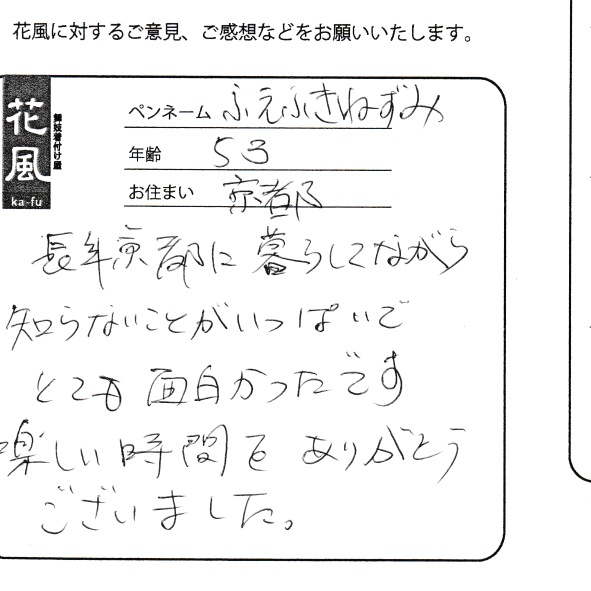 花風に対するご意見、ご感想などをお願いいたします。
花風
舞妓着付け屋
ka-fu
ペンネーム ふえふきねずみ
年齢 53
お住まい 京都
長年京都に暮らしてながら
知らないことがいっぱいで
とても面白かったです
楽しい時間をありがとう
ございました。